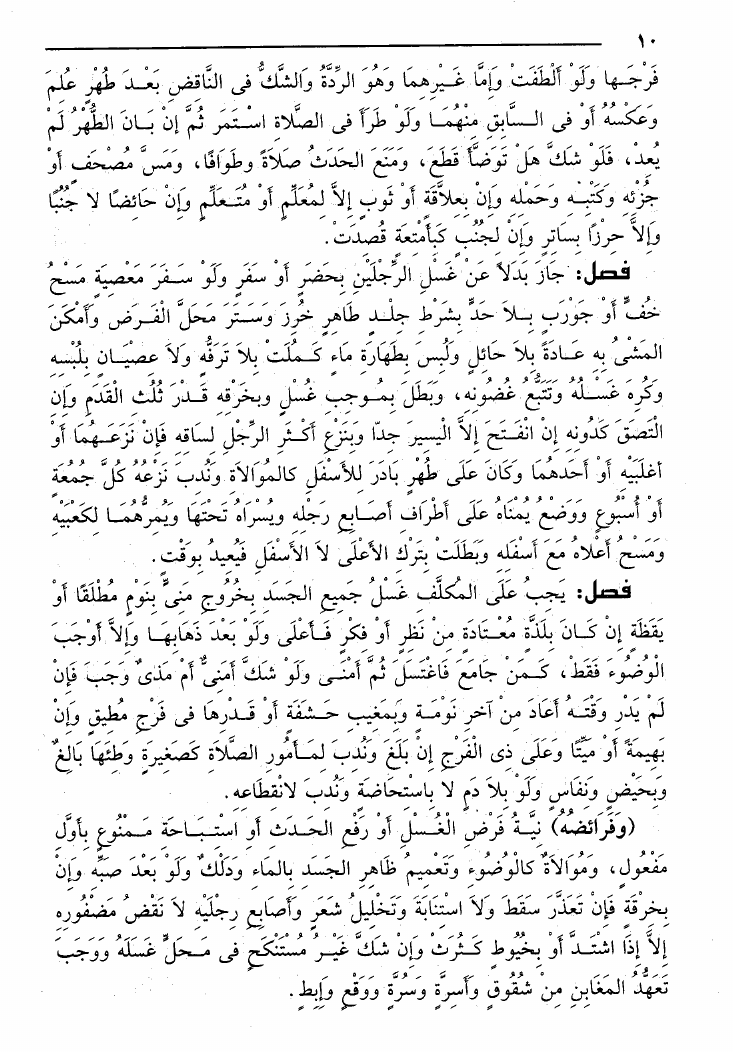 ١٠
فَرْجَهَا وَلَوْ أَلْطَفَتْ وَإِمَّا غَيْرِهِمَا وَهُوَ الرِّدَّةُ وَالشَّكُّ فِى النَّاقِضِ بَعْدَ طُهْرٍ عُلِمَ
وَعَكْسُهُ أَوْ فِى السَّابِقِ مِنْهُمَا وَلَوْ طَرَأَ فِى الصَّلَاةِ اسْتَمَرَّ ثُمَّ إِنْ بَانَ الطُّهْرُ لَمْ
يُعِدْ، فَلَوْ شَكَّ هَلْ تَوَضَّأَ قَطَعَ، وَمَنَعَ الْحَدَثُ صَلَاةً وَطَوَافًا، وَمَسَّ مُصْحَفٍ أَوْ
جُزْئِهِ وَكَتْبَهُ وَحَمْلَهُ وَإِنْ بِعَلَاقَةٍ أَوْ ثَوْبٍ إِلاَّ لِمُعَلِّمٍ أَوْ مُتَعَلِّمٍ وَإِنْ حَائِضًا لاَ جُنُبًا
وَإِلاَّ حِرْزًا بِسَاتِرٍ وَإِنْ لِجُنُبٍ كَبِأَمْتِعَةٍ قُصِدَتْ.
فصل: جَازَ بَدَلاً عَنْ غَسْلِ الرِّجْلَيْنِ بِحَضَرٍ أَوْ سَفَرٍ وَلَوْ سَفَرَ مَعْصِيَةٍ مَسْحُ
خُفٍّ أَوْ جَوْرَبٍ بِلاَ حَدٍّ بِشَرْطِ جِلْدٍ طَاهِرٍ خُرِزَ وَسَتَرَ مَحَلَّ الْفَرْضِ وَأَمْكَنَ
الْمَشْىُ بِهِ عَادَةً بِلاَ حَائِلٍ وَلُبِسَ بِطَهَارَةِ مَاءٍ كَمُلَتْ بِلاَ تَرَفُّهٍ وَلاَ عِصْيَانٍ بِلُبْسِهِ
وَكُرِهَ غَسْلُهُ وَتَتَبُّعُ غُضُونِهِ، وَبَطَلَ بِمُوجِبِ غُسْلٍ وَبِخَرْقِهِ قَدْرَ ثُلُثِ الْقَدَمِ وَإِنِ
الْتَصَقَ كَدُونِهِ إِنِ انْفَتَحَ إِلاَّ الْيَسِيرَ جِدًّا وَبِنَزْعِ أَكْثَرِ الرِّجْلِ لِسَاقِهِ فَإِنْ نَزَعَهُمَا أَوْ
أَعْلَيَيْهِ أَوْ أَحَدَهُمَا وَكَانَ عَلَى طُهْرٍ بَادَرَ لِلأَسْفَلِ كَالْمُوَالاَةِ وَنُدِبَ نَزْعُهُ كُلَّ جُمُعَةٍ
أَوْ أُسْبُوعٍ وَوَضْعُ يُمْنَاهُ عَلَى أَطْرَافِ أَصَابِعِ رِجْلِهِ وَيُسْرَاهُ تَحْتَهَا وَيُمِرُّهُمَا لِكَعْبَيْهِ
وَمَسْحُ أَعْلاَهُ مَعَ أَسْفَلِهِ وَبَطَلَتْ بِتَرْكِ الأَعْلَى لاَ الأَسْفَلِ فَيُعِيدُ بِوَقْتٍ.
فصل: يَجِبُ عَلَى الْمُكَلَّفِ غَسْلُ جَمِيعِ الْجَسَدِ بِخُرُوجِ مَنِىٍّ بِنَوْمٍ مُطْلَقًا أَوْ
يَقَظَةٍ إِنْ كَانَ بِلَذَّةٍ مُعْتَادَةٍ مِنْ نَظَرٍ أَوْ فِكْرٍ فَأَعْلَى وَلَوْ بَعْدَ ذَهَابِهَا وَإِلاَّ أَوْجَبَ
الْوُضُوءَ فَقَطْ، كَمَنْ جَامَعَ فَاغْتَسَلَ ثُمَّ أَمْنَى وَلَوْ شَكَّ أَمَنِىٌّ أَمْ مَذْىٌ وَجَبَ فَإِنْ
لَمْ يَدْرِ وَقْتَهُ أَعَادَ مِنْ آخِرِ نَوْمَةٍ وَبِمَغِيبِ حَشَفَةٍ أَوْ قَدْرِهَا فِى فَرْجِ مُطِيقٍ وَإِنْ
بَهِيمَةً أَوْ مَيِّتًا وَعَلَى ذِى الْفَرْجِ إِنْ بَلَغَ وَنُدِبَ لِمَأْمُورِ الصَّلاَةِ كَصَغِيرَةٍ وَطِئَهَا بَالِغٌ
وَبِحَيْضٍ وَنِفَاسٍ وَلَوْ بِلاَ دَمٍ لاَ بِاسْتِحَاضَةٍ وَنُدِبَ لاِنْقِطَاعِهِ.
(وَفَرَائِضُهُ) نِيَّةُ فَرْضِ الْغُسْلِ أَوْ رَفْعِ الْحَدَثِ أَوِ اسْتِبَاحَةِ مَمْنُوعٍ بِأَوَّلِ
مَفْعُولٍ، وَمُوَالاَةٌ كَالْوُضُوءِ وَتَعْمِيمُ ظَاهِرِ الْجَسَدِ بِالْمَاءِ وَدَلْكٌ وَلَوْ بَعْدَ صَبِّهِ وَإِنْ
بِخِرْقَةٍ فَإِنْ تَعَذَّرَ سَقَطَ وَلاَ اسْتِنَابَةَ وَتَخْلِيلُ شَعَرٍ وَأَصَابِعِ رِجْلَيْهِ لاَ نَقْضُ مَضْفُورِهِ
إِلاَّ إِذَا اشْتَدَّ أَوْ بِخُيُوطٍ كَثُرَتْ وَإِنْ شَكَّ غَيْرُ مُسْتَنْكَحٍ فِى مَحَلٍّ غَسَلَهُ وَوَجَبَ
تَعَهُّدُ الْمَغَابِنِ مِنْ شُقُوقٍ وَأَسِرَّةٍ وَسُرَّةٍ وَرَفْغٍ وَإِبِطٍ.